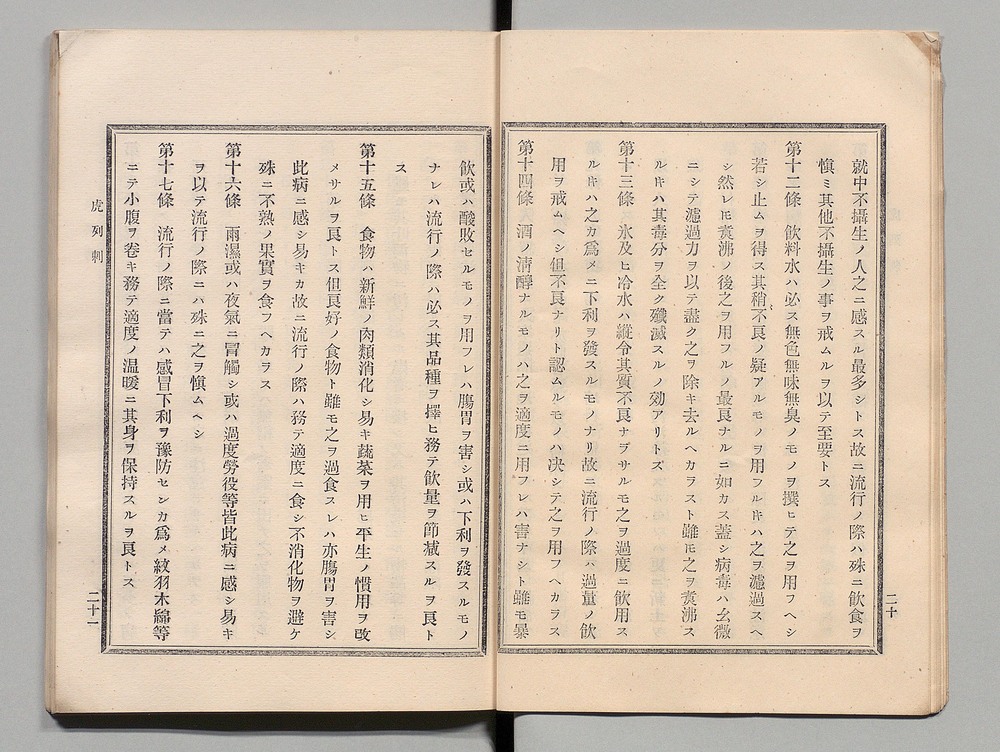 就中不攝生ノ人之ニ感スル最多シトス故ニ流行ノ際ハ殊ニ飮食ヲ
愼ミ其他不攝生ノ事ヲ戒ムルヲ以テ至要トス
第十二條　飮料水ハ必ス無色無味無臭ノモノヲ撰ヒテ之ヲ用フヘシ
若シ止ムヲ得ス其稍不良ノ疑アルモノヲ用フル𪜈ハ之ヲ濾過スヘ
シ然レ𪜈煑沸ノ後之ヲ用フルノ最良ナルニ如カス蓋シ病毒ハ幺微
ニシテ濾過力ヲ以テ盡ク之ヲ除キ去ルヘカラスト雖𪜈之ヲ煑沸ス
ルキハ其毒分ヲ全ク殲滅スルノ効アリトズ
第十三條　氷及ヒ冷水ハ縱令其質不良ナヲサルモ之ヲ過度ニ飮用ス
ルキハ之カ爲メニ下利ヲ發スルモノナリ故ニ流行ノ際ハ過量ノ飮
用ヲ戒ムヘシ但不良ナリト認ムルモノハ决シテ之ヲ用フヘカラス
第十四條　酒ノ清醇ナルモノハ之ヲ適度ニ用フレハ害ナシト雖モ暴
二十
飮或ハ酸敗セルモノヲ用フレハ膓胃ヲ害シ或ハ下利ヲ發スルモノ
ナレハ流行ノ際ハ必ス其品種ヲ擇ヒ務テ飮量ヲ節减スルヲ良ト
ス
第十五條　食物ハ新鮮ノ肉類消化シ易キ蔬菜ヲ用ヒ平生ノ慣用ヲ改
メサルヲ良トス但良好ノ食物ト雖モ之ヲ過食スレハ亦膓胃ヲ害シ
此病ニ感シ易キカ故ニ流行ノ際ハ務テ適度ニ食シ不消化物ヲ避ケ
殊ニ不熟ノ果實ヲ食フヘカラス
第十六條　雨濕或ハ夜氣ニ冒觸シ或ハ過度勞役等皆此病ニ感シ易キ
ヲ以テ流行ノ際ニハ殊ニ之ヲ愼ムヘシ
第十七條　流行ノ際ニ當テハ感冒下利ヲ豫防センカ爲メ紋羽木綿等
ニテ小腹ヲ卷キ務テ適度ノ温暖ニ其身ヲ保持スルヲ良トス
虎列剌
二十一